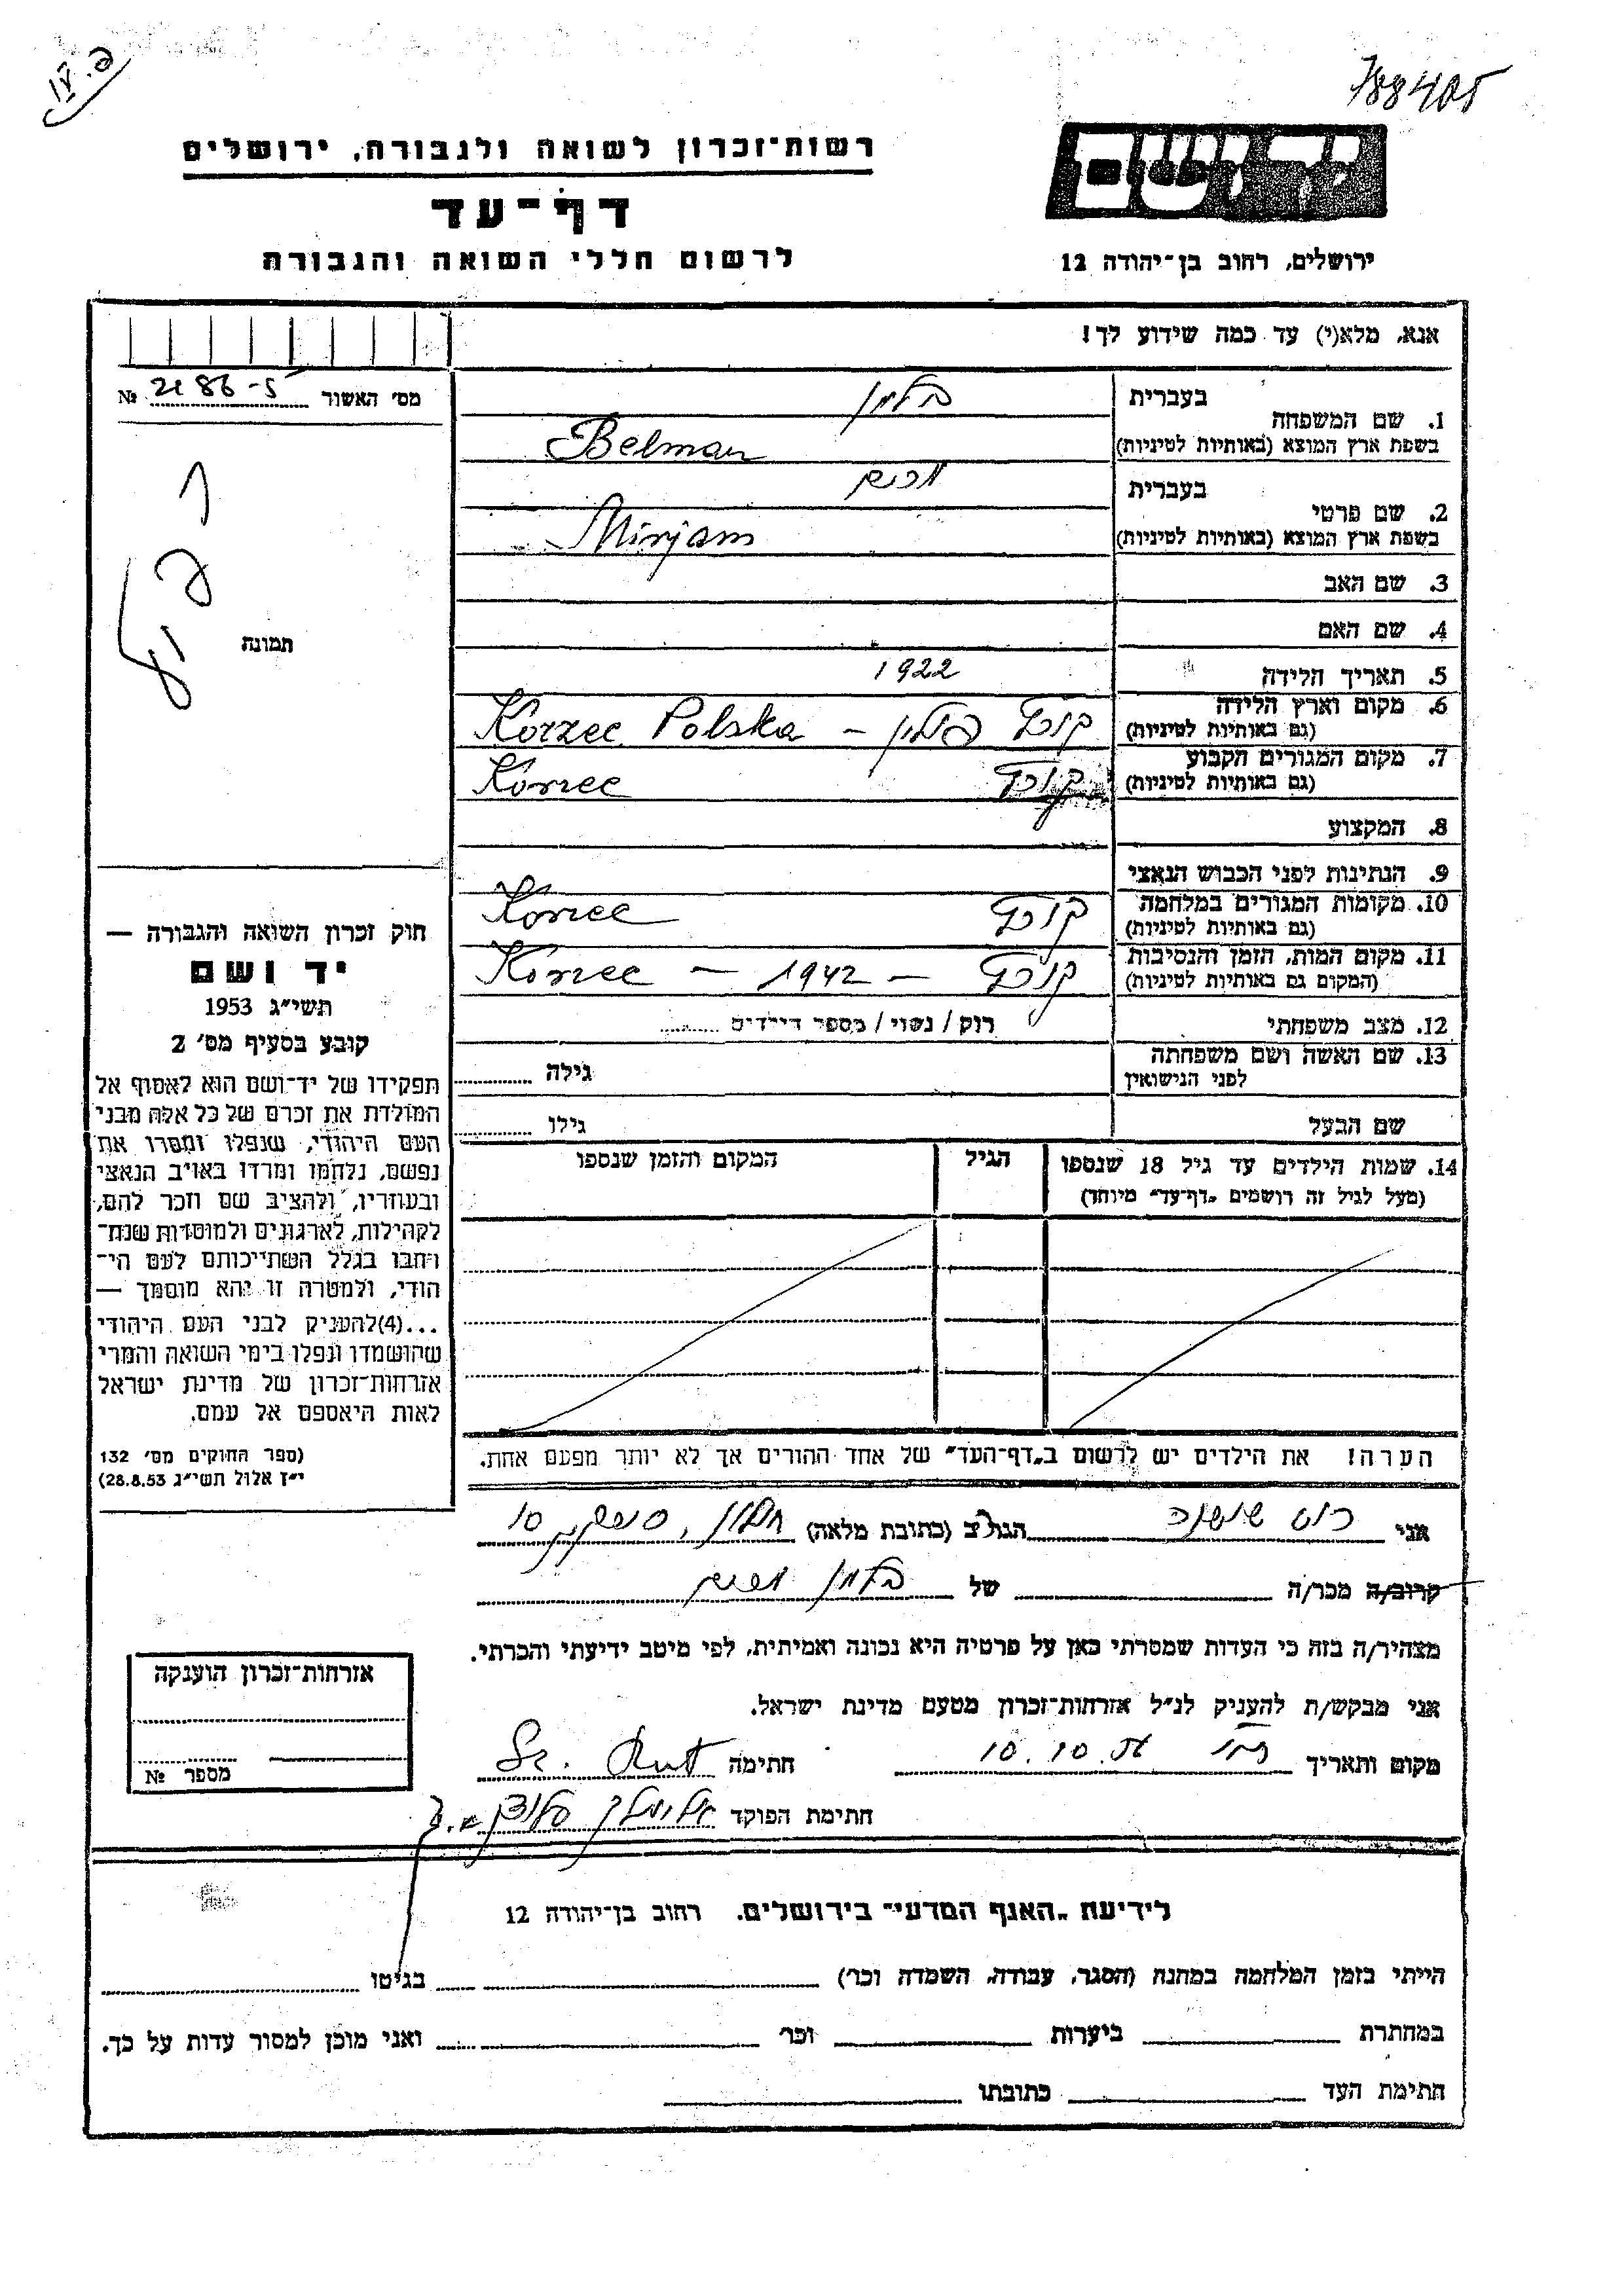 788405
רשות־זכרון לשואה ולגבורה, ירושלים
יד ושם
דף־עד
לרשום חללי השואה והגבורה
ירושלים, רחוב בן־יהודה 12
אנא, מלא(י) עד כמה שידוע לך!
מס׳ האשור № 2186-5
תמונה
1. שם המשפחה
בעברית בלמן
בשפת ארץ המוצא (באותיות לטיניות) Belman
2. שם פרטי
בעברית מרים
בשפת ארץ המוצא (באותיות לטיניות) Mirjam
3. שם האב
4. שם האם
5. תאריך הלידה 1922
6. מקום וארץ הלידה קורץ פולין – Korzec Polska
(גם באותיות לטיניות)
7. מקום המגורים הקבוע קורץ Korzec
(גם באותיות לטיניות)
8. המקצוע
9. הנתינות לפני הכבוש הנאצי
10. מקומות המגורים במלחמה קורץ Korzec
(גם באותיות לטיניות)
11. מקום המות, הזמן והנסיבות קורץ – 1942 – Korzec
(המקום גם באותיות לטיניות)
12. מצב משפחתי רוק / נשוי / מספר הילדים
13. שם האשה ושם משפחתה
לפני הנישואין גילה
שם הבעל גילו
14. שמות הילדים עד גיל 18 שנספו הגיל המקום והזמן שנספו
(מעל לגיל זה רושמים „דף־עד״ מיוחד)
הערה! את הילדים יש לרשום ב„דף־העד״ של אחד ההורים אך לא יותר מפעם אחת.
חוק זכרון השואה והגבורה —
יד ושם
תשי״ג 1953
קובע בסעיף מס׳ 2
תפקידו של יד־ושם הוא לאסוף אל
המולדת את זכרם של כל אלה מבני
העם היהודי, שנפלו ומסרו את
נפשם, נלחמו ומרדו באויב הנאצי
ובעוזריו, ולהציב שם וזכר להם,
לקהילות, לארגונים ולמוסדות שנח־
רבו בגלל השתייכותם לעם הי־
הודי, ולמטרה זו יהא מוסמך —
...(4)להעניק לבני העם היהודי
שהושמדו ונפלו בימי השואה והמרי
אזרחות־זכרון של מדינת ישראל
לאות היאספם אל עמם.
(ספר החוקים מס׳ 132
י״ז אלול תשי״ג 28.8.53)
אני רוט שושנה הגר/ב (כתובת מלאה) חולון, סוקולוב 10
קרוב/ה מכר/ה של בלמן מרים
מצהיר/ה בזה כי העדות שמסרתי כאן על פרטיה היא נכונה ואמיתית, לפי מיטב ידיעתי והכרתי.
אני מבקש/ת להעניק לנ״ל אזרחות־זכרון מטעם מדינת ישראל.
מקום ותאריך 10.10 חתימה Sz. Rutt
חתימת הפוקד
אזרחות־זכרון הוענקה
מספר №
לידיעת „האגף המדעי״ בירושלים. רחוב בן־יהודה 12
הייתי בזמן המלחמה במחנה (הסגר, עבודה, השמדה וכר׳) בגיטו
במחתרת ביערות וכר׳ ואני מוכן למסור עדות על כך.
חתימת העד כתובתו